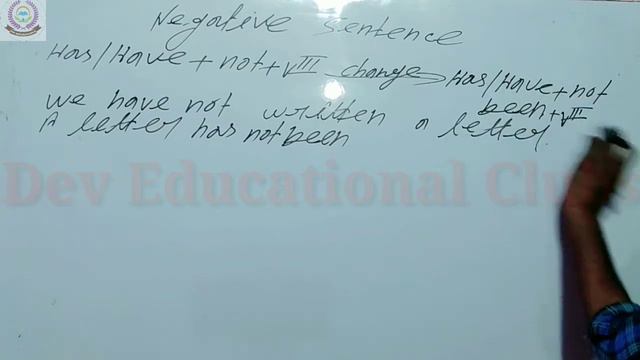 Negative Sentence
Has/Have + not + VIII change Has/Have + not
been + VIII
We have not written a letter.
A letter has not been
Dev Educational